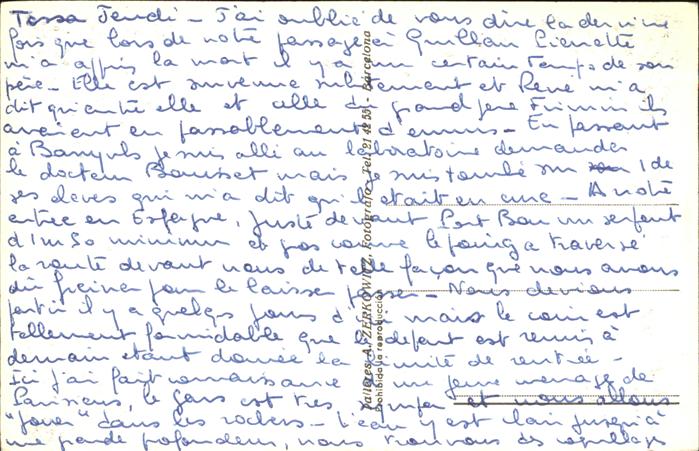 Tossa Jeudi - J'ai oublié de vous dire la dernière
fois que lors de notre passage à Quillan Pierrette
m'a appris la mort il y a un certain temps de son
père - Elle est survenue subitement et René m'a
dit qu'entre elle et celle du grand père Firmin ils
avaient eu passablement d'ennuis - En passant
à Banyuls je suis allé au laboratoire demander
le docteur Bousset mais je suis tombé sur 1 de
ses élèves qui m'a dit qu'il était en cure - A notre
entrée en Espagne, juste devant Port Bou un serpent
d'1m50 minimum et gros comme le poing a traversé
la route devant nous de telle façon que nous avons
dû freiner pour le laisser passer - Nous devions
partir il y a quelques jours d'ici mais le coin est
tellement formidable que le départ est remis à
demain étant donnée la proximité de rentrée -
Ici j'ai fait connaissance d'un jeune ménage de
Parisiens, le gars est très et nous allons
"jouer" dans les rochers - L'eau y est claire jusqu'à
une grande profondeur, nous trouvons des coquillages
Talleres A. ZERKOWITZ, Fotógrafo - Tel. 21 42 55 - Barcelona
Prohibida la reproducción